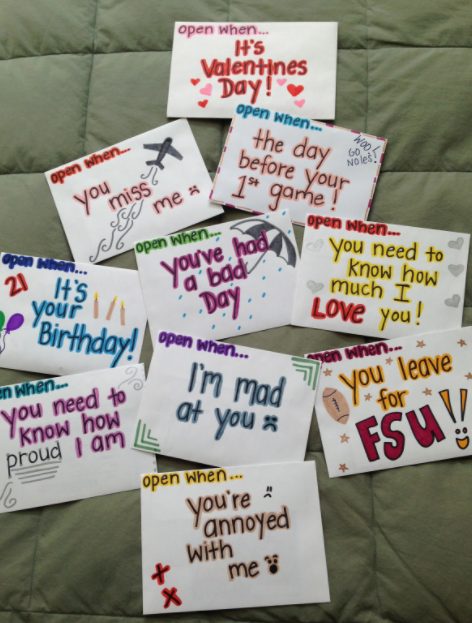 open when...
It's
Valentines
Day!
open when...
the day
before your
1st game!
WOO!
GO
NOLES!
open when...
you
miss
me
open when...
you've had
a bad
Day
open when...
you need to
know how
much I
LOVE you!
open when...
21
It's
your
Birthday!
open when...
I'm mad
at you
open when...
you leave
for
FSU!!
open when...
you need to
know how
proud I am
open when...
you're
annoyed
with
me